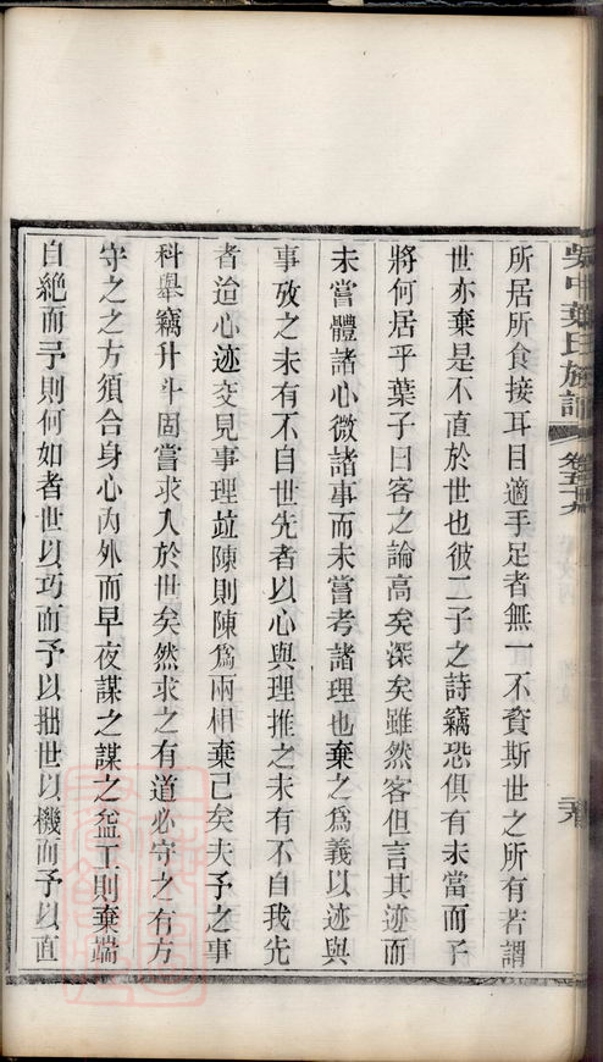 吳中葉氏族譜 卷五十六
所居所食接耳目適手足者無一不資斯世之所有若謂
世亦棄是不直於世也彼二子之詩竊恐俱有未當而子
將何居乎葉子曰客之論高矣深矣雖然客但言其迹而
未嘗體諸心微諸事而未嘗考諸理也棄之爲義以迹與
事攷之未有不自世先者以心與理推之未有不自我先
者迨心迹交見事理竝陳則陳爲兩相棄已矣夫予之事
科舉竊升斗固嘗求入於世矣然求之有道必守之有方
守之之方須合身心內外而早夜謀之謀之益工則棄端
自絕而予則何如者世以巧而予以拙世以機而予以直